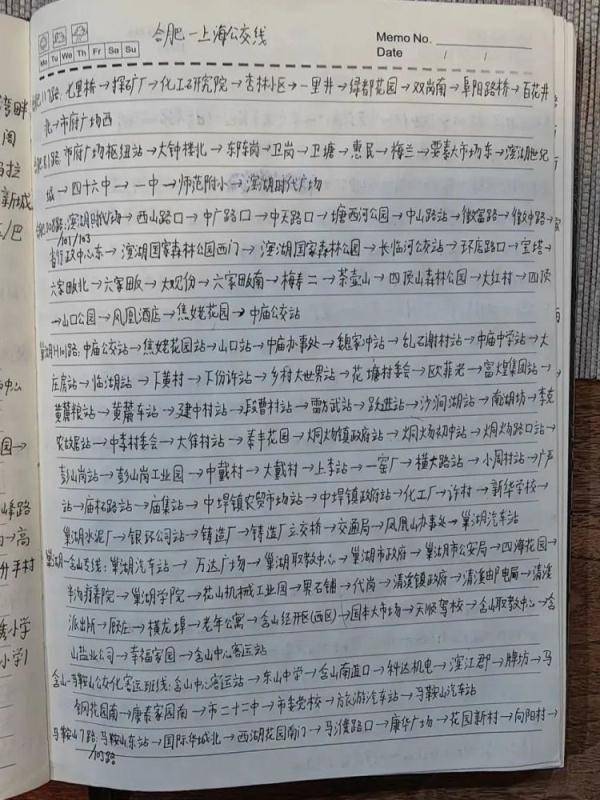 合肥—上海公交线
Memo No.
Mo Tu We Th Fr Sa Su
Date / /
合肥117路: 七里桥→探矿厂→化工研究院→杏林小区→一里井→绿都花园→双岗南→阜阳路桥→百花井
北→市府广场西
合肥81路: 市府广场枢纽站→大钟楼北→东陈岗→卫岗→卫塘→惠民→梅兰→要素大市场东→滨湖世纪
城→四十六中→一中→师范附小→滨湖时代广场
滨湖时代广场→西山路口→中广路口→中天路口→塘西河公园→中山路站→徽富路→徽中路→
/107/103
省行政中心东→滨湖国家森林公园西门→滨湖国家森林公园→长临河公交站→环底路口→宝塔→
六家畈北→六家畈→大观份→六家畈南→梅寿二→茶壶山→四顶山森林公园→大红村→四顶
→山口公园→凤凰酒店→焦姥花园→中庙公交站
中庙公交站→焦姥花园站→山口站→中庙办事处→魏家冲站→乱石谢村站→中庙中学站→大
庄房站→临湖站→下黄村→下份许站→乡村大世界站→花塘村委会→欧菲光→富煌集团站→
黄麓粮站→黄麓车站→建中村站→段曹村站→雷方武站→跃进站→沙涧湖站→南湖坊→李克
农故居站→中李村委会→大俚村站→泰丰花园→炯炀镇政府站→炯炀初中站→炯炀路口站→
彭山岗站→彭山岗工业园→中戴村→大戴村→上李站→一窑厂→横大路站→小周村站→广严
站→庙杧路站→庙集站→中垾镇农贸市场站→中垾镇政府站→化工厂→许村→新华学校→
巢湖水泥厂→银环公司站→铸造厂→铸造厂立交桥→交通局→凤凰山办事处→巢湖汽车站
巢湖-含山专线: 巢湖汽车站→万达广场→巢湖职教中心→巢湖市政府→巢湖市公安局→四海花园→
半汤疗养院→巢湖学院→花山机械工业园→果石铺→代岗→清溪镇政府→清溪邮电局→清溪
派出所→顾庄→横龙埠→老年公寓→含山经开区(西区)→国丰大市场→天顺驾校→含山职教中心→含
山盐业公司→幸福家园→含山中心客运站
含山-马鞍山公交化客运班线: 含山中心客运站→东山中学→含山南道口→科达机电→滨江郡→牌坊→马
钢花园南→康泰家园南→市二十二中→市委党校→方旅游汽车站→马鞍山汽车站
马鞍山7路: 马鞍山东站→国际华城北→西湖花园南门→马濮路口→康华广场→花园新村→向阳村→
/109路